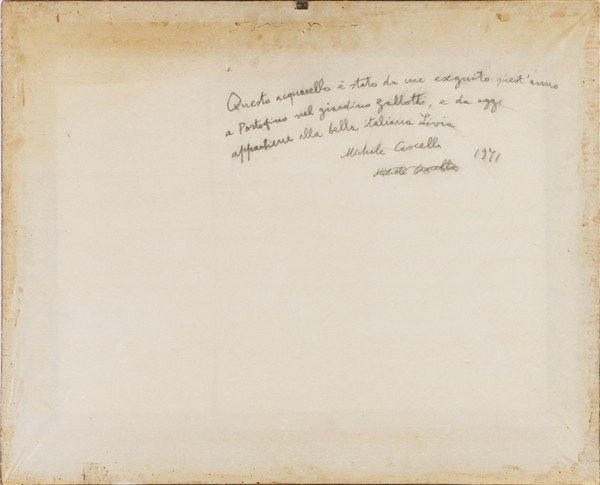 Questo acquarello è stato da me eseguito quest'anno
a Portofino nel giardino Gallotti, e da oggi
appartiene alla bella italiana Livia
Michele Cascella 1971
Michele Cascella